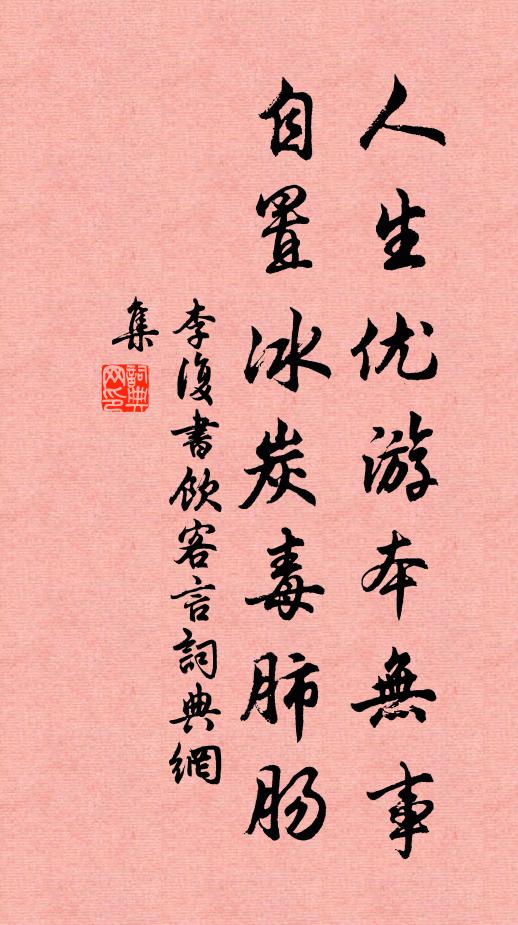 人生优游本無事
自置冰炭毒肺肠
李復書飲客言詞典網
集
詞典
网印